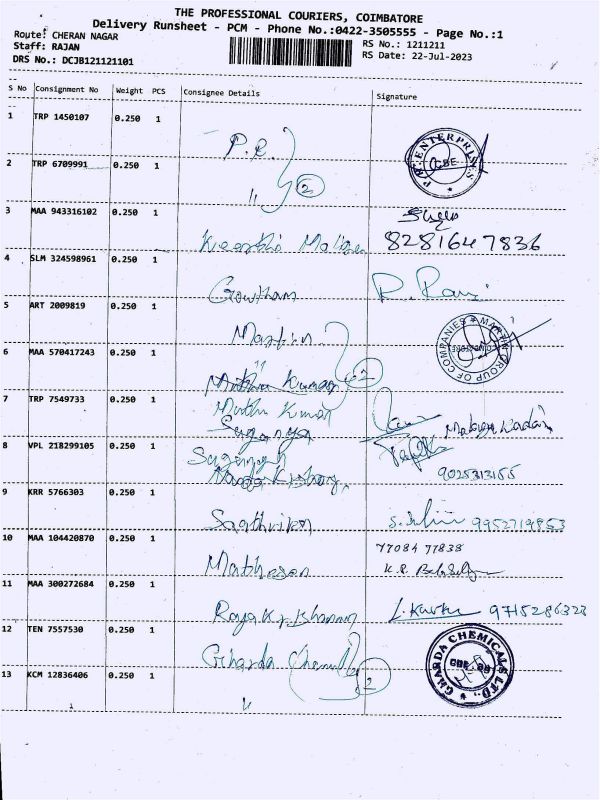 THE PROFESSIONAL COURIERS, COIMBATORE
Delivery Runsheet - PCM - Phone No.:0422-3505555 - Page No.:1
Route: CHERAN NAGAR
RS No.: 1211211
Staff: RAJAN
RS Date: 22-Jul-2023
DRS No.: DCJB121121101
S No Consignment No Weight PCS Consignee Details Signature
1 TRP 1450107 0.250 1
P.R.
P.R. ENTERPRISES CBE
2 TRP 6709991 0.250 1
" 2
3 MAA 943316102 0.250 1
8281647836
4 SLM 324598961 0.250 1
Gowtham R. Ravi
5 ART 2009819 0.250 1
Martin
MARTIN GROUP OF COMPANIES
6 MAA 570417243 0.250 1
" 2
Muthu Kumar
7 TRP 7549733 0.250 1
Muthu Kumar
Suganya
8 VPL 218299105 0.250 1
9025313155
9 KRR 5766303 0.250 1
9952719853
10 MAA 104420870 0.250 1
77084 77838
Matheson K.R.
11 MAA 300272684 0.250 1
Raja Krishnan 9715286328
12 TEN 7557530 0.250 1
Gharda Chemull
GHARDA CHEMICALS LTD.
13 KCM 12836406 0.250 1
" 2